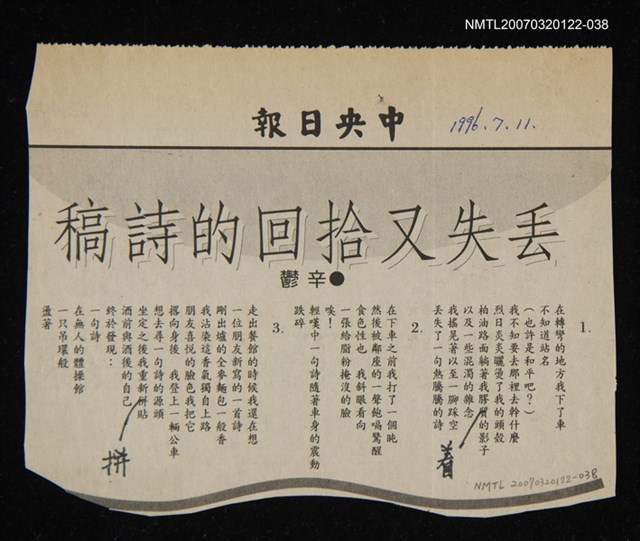 NMTL20070320122-038
中央日報
1996.7.11.
丟失又拾回的詩稿
●辛鬱
1.
在轉彎的地方我下了車
不知道站名
（也許是和平吧？）
我不知要去那裡去幹什麼
烈日炎炎曬燙了我的頭殼
柏油路面躺著我膠質的影子
以及一些混濁的雜念
我搖晃著以至一腳踩空
丟失了一句熱騰騰的詩
着
2.
在下車之前我打了一個盹
然後被鄰座的一聲飽嗝驚醒
食色性也　我斜眼看向
一張給脂粉掩沒的臉
唉！
輕嘆中一句詩隨著車身的震動
跌碎
3.
走出餐館的時候我還在想
一位朋友新寫的一首詩
剛出爐的全麥麵包一般香
我沾染這香氣獨自上路
朋友喜悅的臉色我把它
撂向身後　我登上一輛公車
想去尋一句詩的源頭
坐定之後我重新拼貼
酒前與酒後的自己
終於發現：
一句詩
在無人的體操館
一只吊環般
盪著
拼
NMTL 20070320122-038